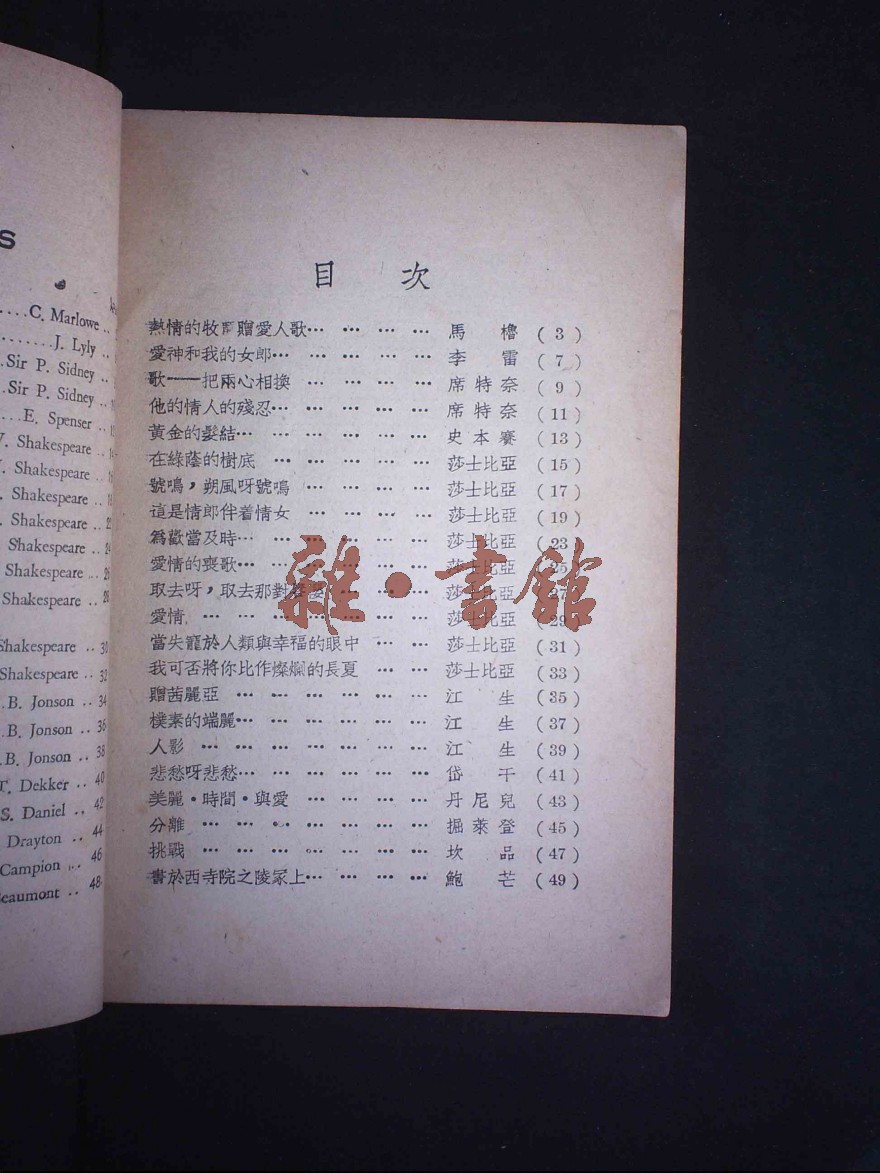 S
....C. Marlowe ..
........J. Lyly ..
.Sir P. Sidney ..
.Sir P. Sidney ..
...E. Spenser ..
. Shakespeare ..
. Shakespeare ..
. Shakespeare ..
. Shakespeare .. 22
Shakespeare .. 24
Shakespeare .. 26
Shakespeare .. 28
Shakespeare .. 30
Shakespeare .. 32
.B. Jonson .. 34
B. Jonson .. 36
B. Jonson .. 38
T. Dekker .. 40
S. Daniel .. 42
Drayton .. 44
Campion ... 46
Beaumont .. 48
目 次
熱情的牧 贈愛人歌… … … … 馬 櫓 (3)
愛神和我的女郎… … … … 李 雷 (7)
歌——把兩心相換 … … … … 席特奈 (9)
他的情人的殘忍… … … … 席特奈 (11)
黃金的髮結… … … … … 史本賽 (13)
在綠蔭的樹底 … … … … … 莎士比亞 (15)
號鳴，朔風呀號鳴 … … … … 莎士比亞 (17)
這是情郎伴着情女 … … … … 莎士比亞 (19)
為歡當及時… … … … … 莎士比亞 (23)
愛情的喪歌… … … … … 莎士比亞 (25)
取去呀，取去那對 … … 莎士比亞 (27)
愛情 … … … … … … 莎士比亞 (29)
當失寵於人類與幸福的眼中 … … 莎士比亞 (31)
我可否將你比作燦爛的長夏 … … 莎士比亞 (33)
贈茜麗亞 … … … … … 江 生 (35)
樸素的端麗… … … … … 江 生 (37)
人影 … … … … … … 江 生 (39)
悲愁呀悲愁… … … … … 岱 干 (41)
美麗·時間·與愛 … … … … 丹尼兒 (43)
分離 … … … … … … 掘萊登 (45)
挑戰 … … … … … … 坎 品 (47)
書於西寺院之陵冢上… … … … 鮑 芒 (49)
雜·書館